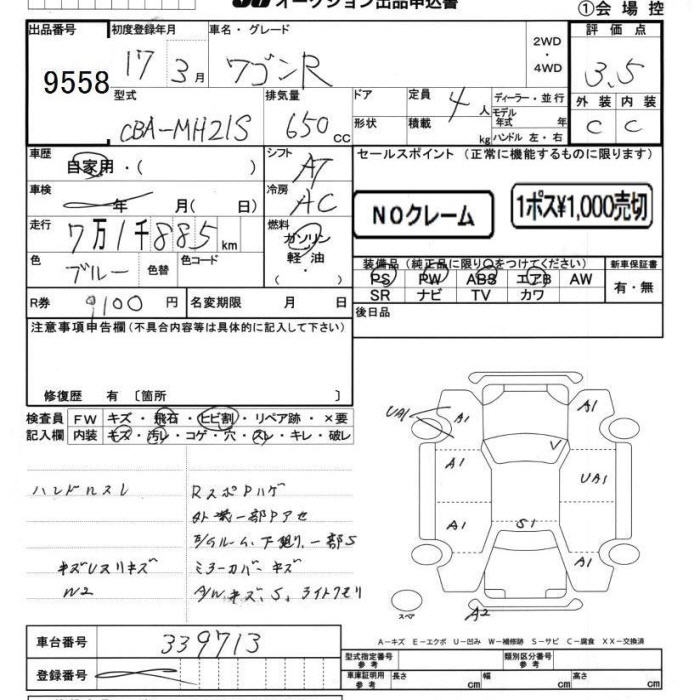 オークション出品申込書
①会場控
出品番号 初度登録年月 車名・グレード 2WD ・ 4WD 評価点
9558 17 3月 ワゴンR 3.5
型式 排気量 ドア 定員 4人 ディーラー・並行 外装 内装
CBA-MH21S 650cc 形状 積載 kg モデル年式 年 ハンドル 左・右 C C
車歴 自家用・( ) シフト AT セールスポイント (正常に機能するものに限ります)
車検 年 月( 日) 冷房 AC NOクレーム 1ポス¥1,000売切
走行 7万1千885km 燃料 ガソリン 軽油 ( )
色 ブルー 色替 色コード
装備品 (純正品に限り○をつけてください) 新車保証書
PS PW ABS エアB AW 有・無
SR ナビ TV カワ
R券 9100円 名変期限 月 日 後日品
注意事項申告欄(不具合内容等は具体的に記入して下さい)
修復歴 有 〔箇所 〕
検査員 FW キズ・飛石・ヒビ割・リペア跡・×要
記入欄 内装 キズ・汚レ・コゲ・穴・スレ・キレ・破レ
ハンドルスレ RスポPハゲ
外装一部Pアセ
下廻り、一部S
ミラーカバーキズ
A/Wキズ、S、ライトクモリ
W2
UA1 A1 A1
A1 V UA1
A1 S1 A1
スペア A2
A-キズ E-エクボ U-凹み W-補修跡 S-サビ C-腐食 XX-交換済
車台番号 339713
型式指定番号 参考 類別区分番号 参考
登録番号 車庫証明用 参考 長さ cm 幅 cm 高さ cm